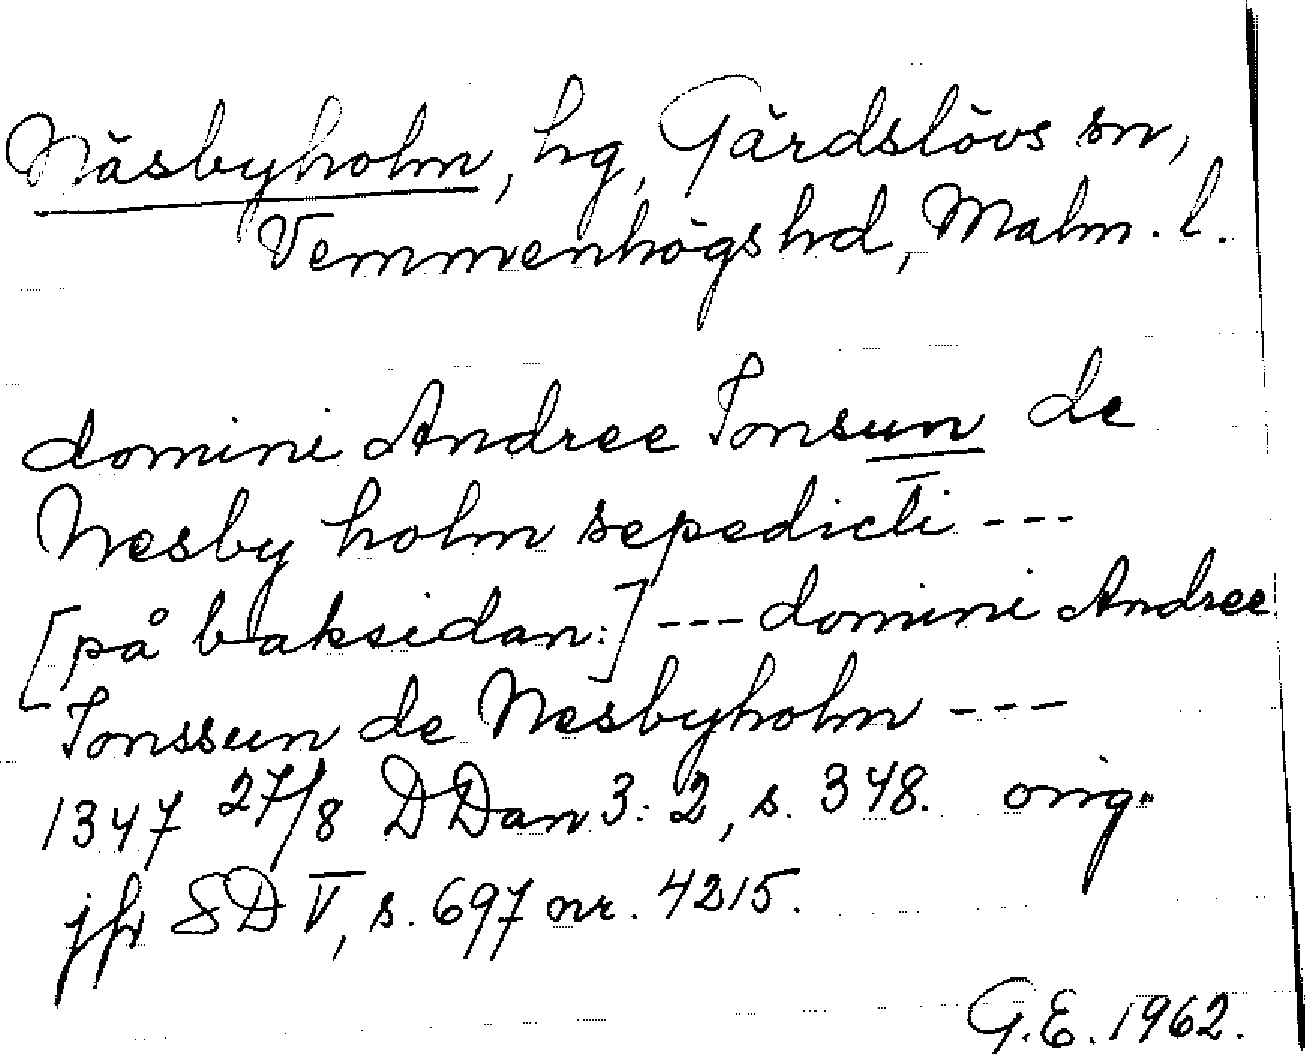 Näsbyholm, hg, Gärdslövs sn,
Vemmenhögs hd, Malm. l.
domini Andree Jonsun de
Nesby holm sepedicti ---
[på baksidan:] --- domini Andree
Jonssun de Nesbyholm ---
1347 27/8 DDan 3:2, s. 348. orig.
jfr SD V, s. 697 nr. 4215.
G.E. 1962.